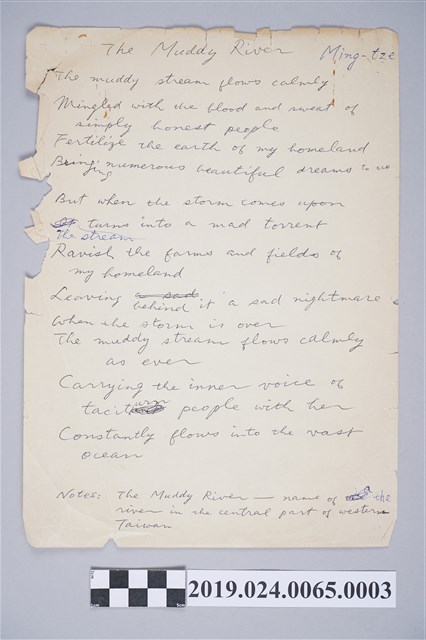 The Muddy River Ming-tze
The muddy stream flows calmly
Mingled with the blood and sweat of
simply honest people
Fertilize the earth of my homeland
Bringing numerous beautiful dreams to us
But when the storm comes upon
It turns into a mad torrent
The stream
Ravish the farms and fields of
my homeland
Leaving a sad
behind it a sad nightmare
When the storm is over
The muddy stream flows calmly
as ever
Carrying the inner voice of
taciturn people with her
Constantly flows into the vast
ocean
Notes: The Muddy River — name of the
river in the central part of western
Taiwan
2019.024.0065.0003